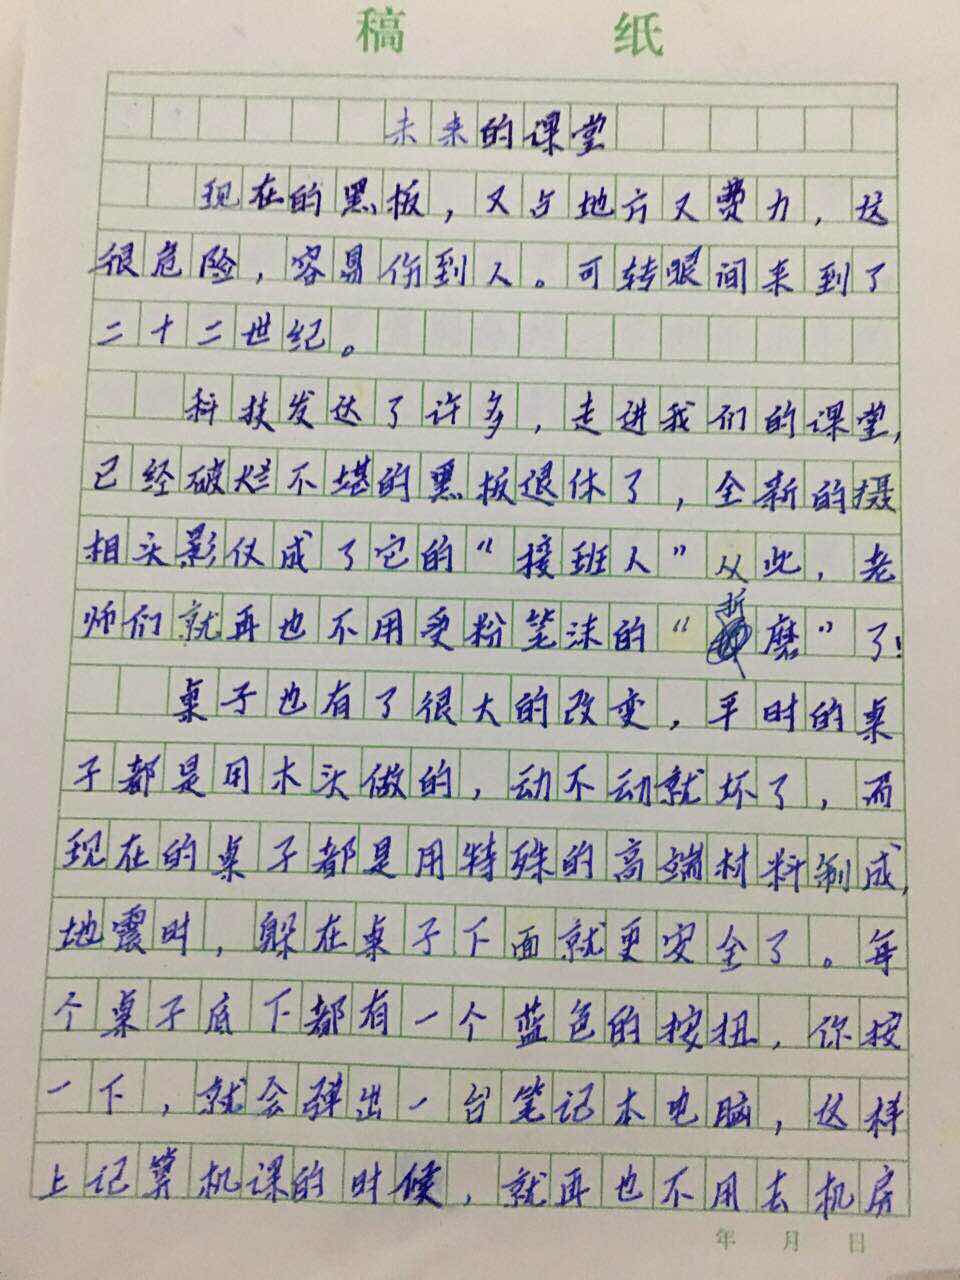 稿 纸
未来的课堂
现在的黑板，又占地方又费力，这
很危险，容易伤到人。可转眼间来到了
二十二世纪。
科技发达了许多，走进我们的课堂，
已经破烂不堪的黑板退休了，全新的摄
相头影仪成了它的“接班人”从此，老
师们就再也不用受粉笔沫的“折磨”了！
桌子也有了很大的改变，平时的桌
子都是用木头做的，动不动就坏了，而
现在的桌子都是用特殊的高端材料制成，
地震时，躲在桌子下面就更安全了。每
个桌子底下都有一个蓝色的按扭，你按
一下，就会弹出一台笔记本电脑，这样
上记算机课的时候，就再也不用去机房
年 月 日